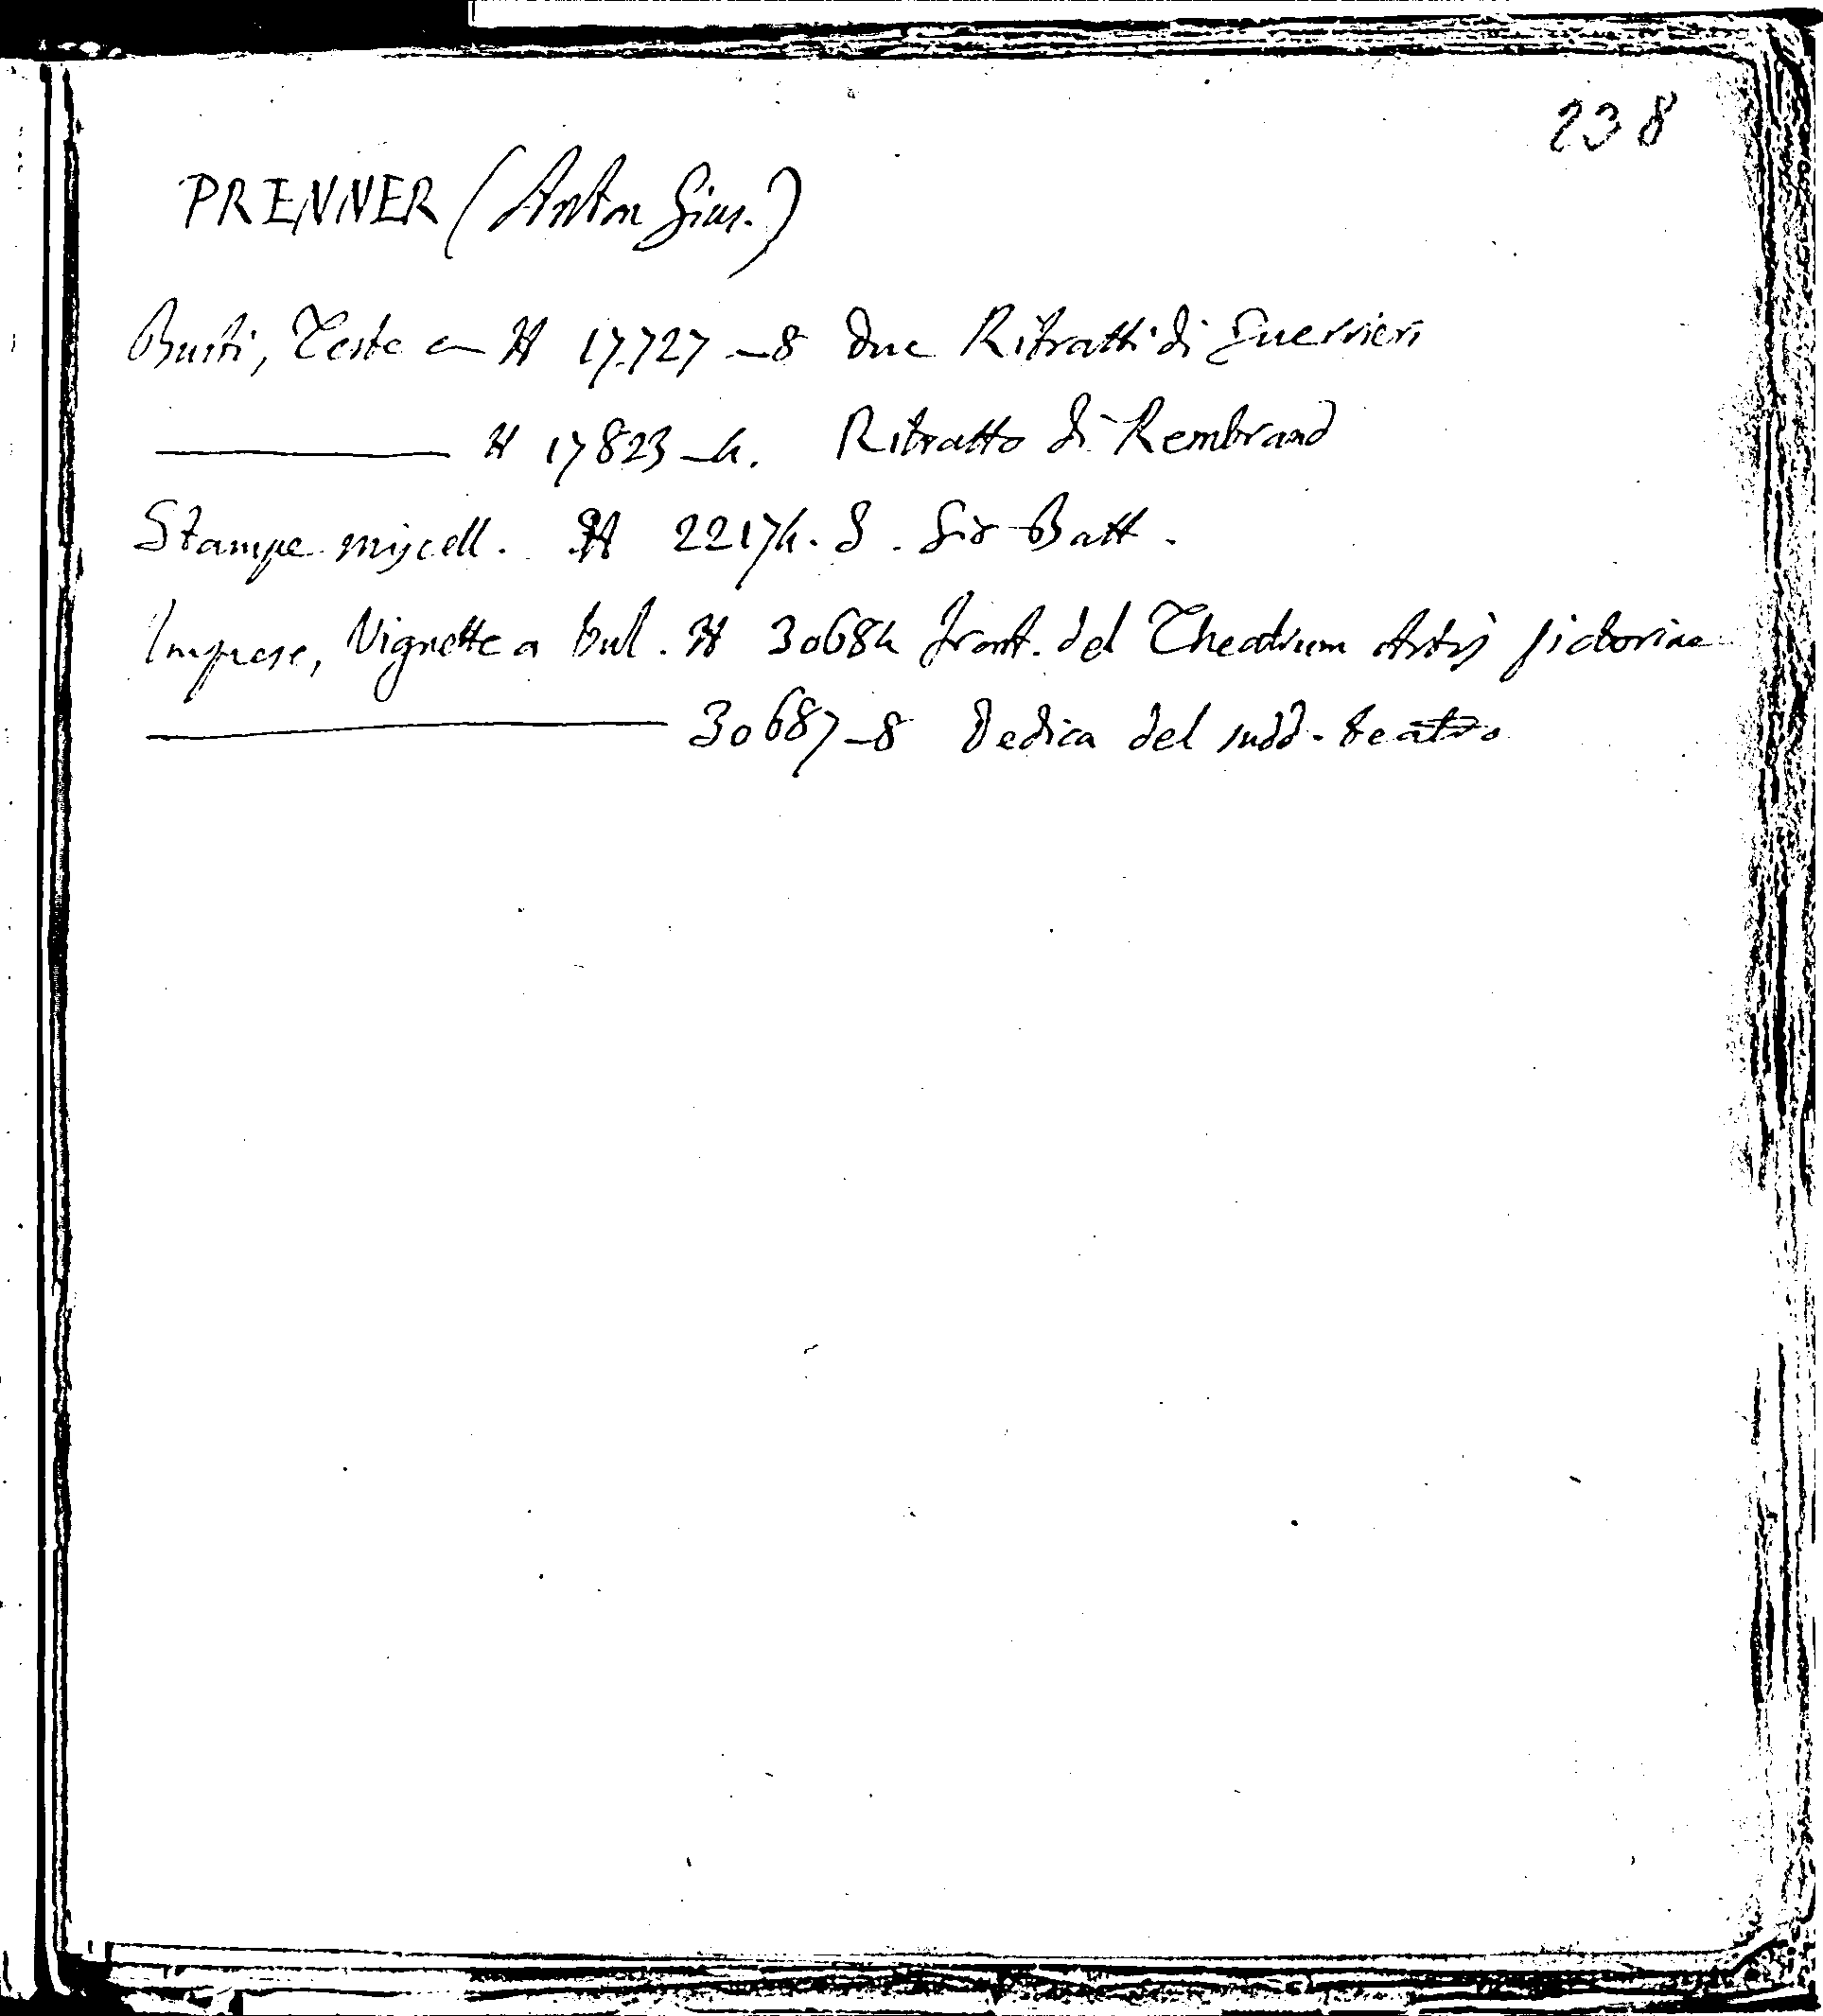 238
PRENNER (Anton Gius.)
Busti, Teste e H 17.727_8 due Ritratti di Guerrieri
H 17823_4. Ritratto di Rembrand
Stampe miscell. H 22174. S. Gio Batt.
Imprese, Vignette a bul. H 30684 front. del Theatrum Artis pictorine
30687_8 Dedica del sudd. teatro